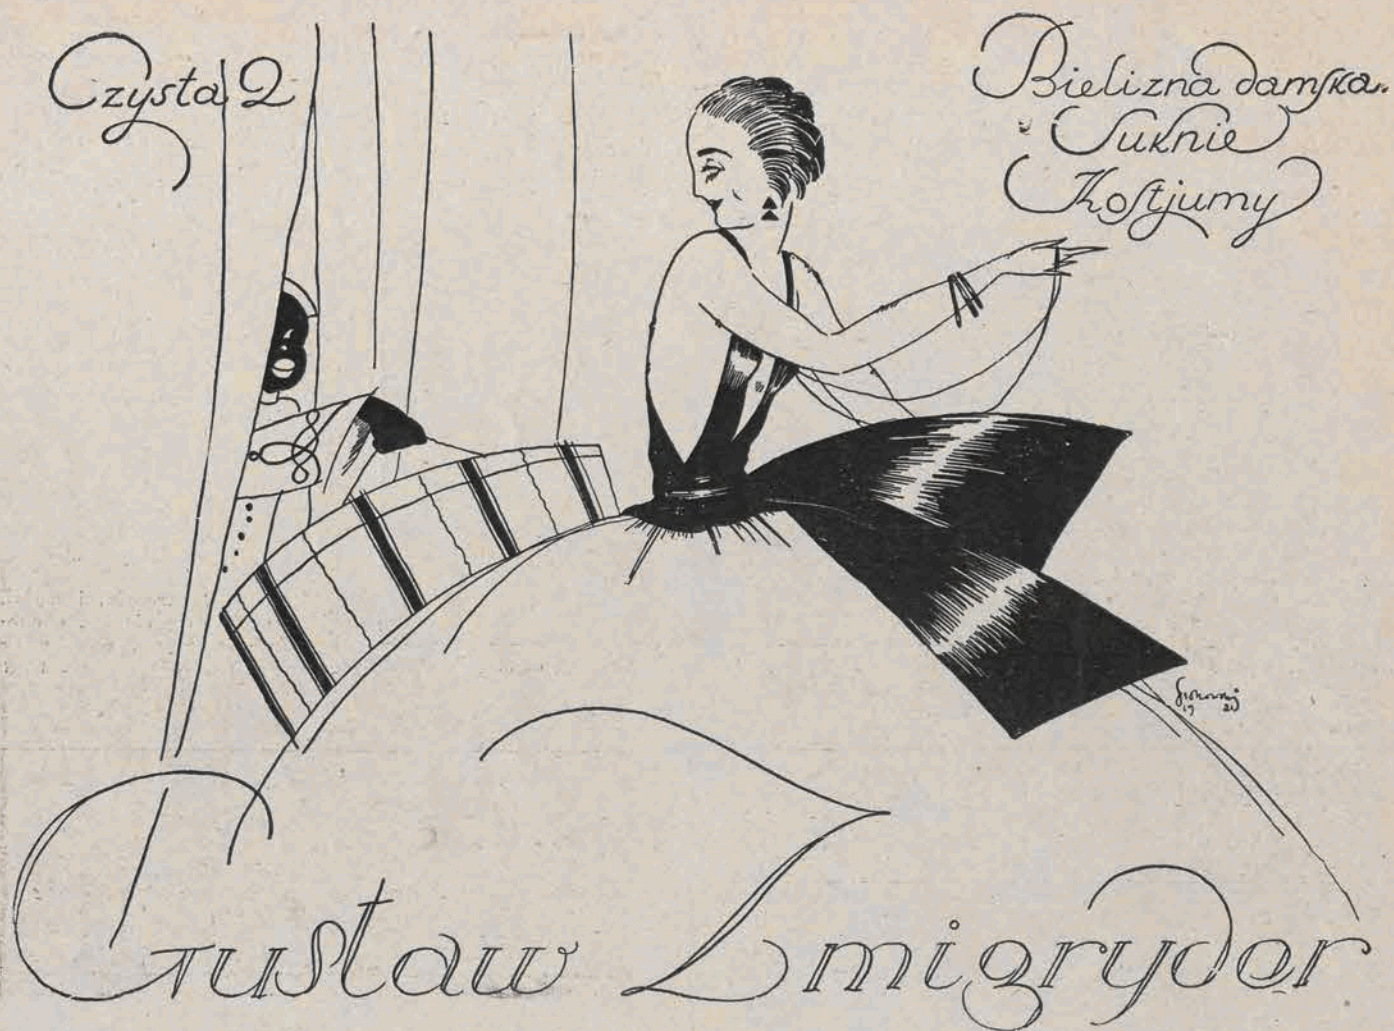 Czysta 2
Bielizna damska.
Suknie
Kostjumy
19 21
Gustaw Zmigryder